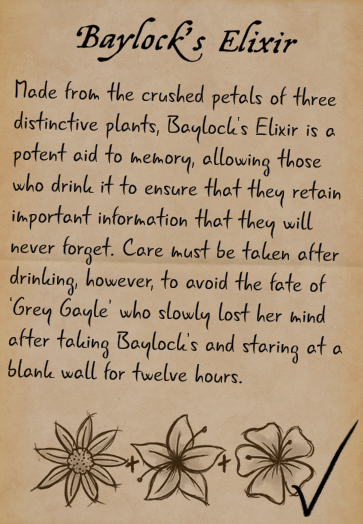 Baylock's Elixir
Made from the crushed petals of three
distinctive plants, Baylock's Elixir is a
potent aid to memory, allowing those
who drink it to ensure that they retain
important information that they will
never forget. Care must be taken after
drinking, however, to avoid the fate of
'Grey Gayle' who slowly lost her mind
after taking Baylock's and staring at a
blank wall for twelve hours.
+ +